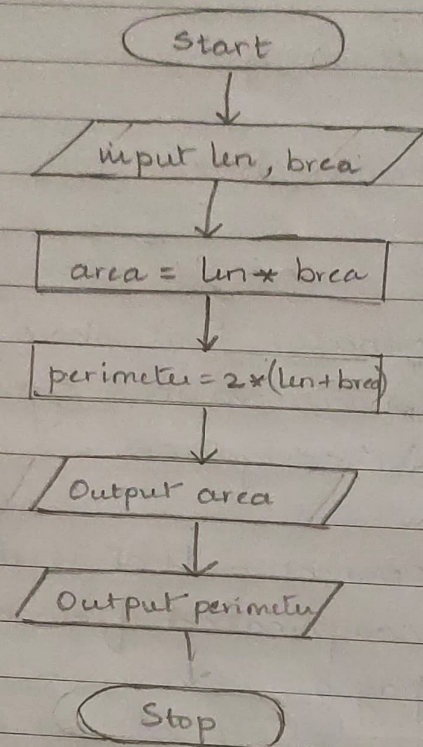 Start
input len, brea
area = len * brea
perimeter = 2*(len+brea)
Output area
Output perimeter
Stop